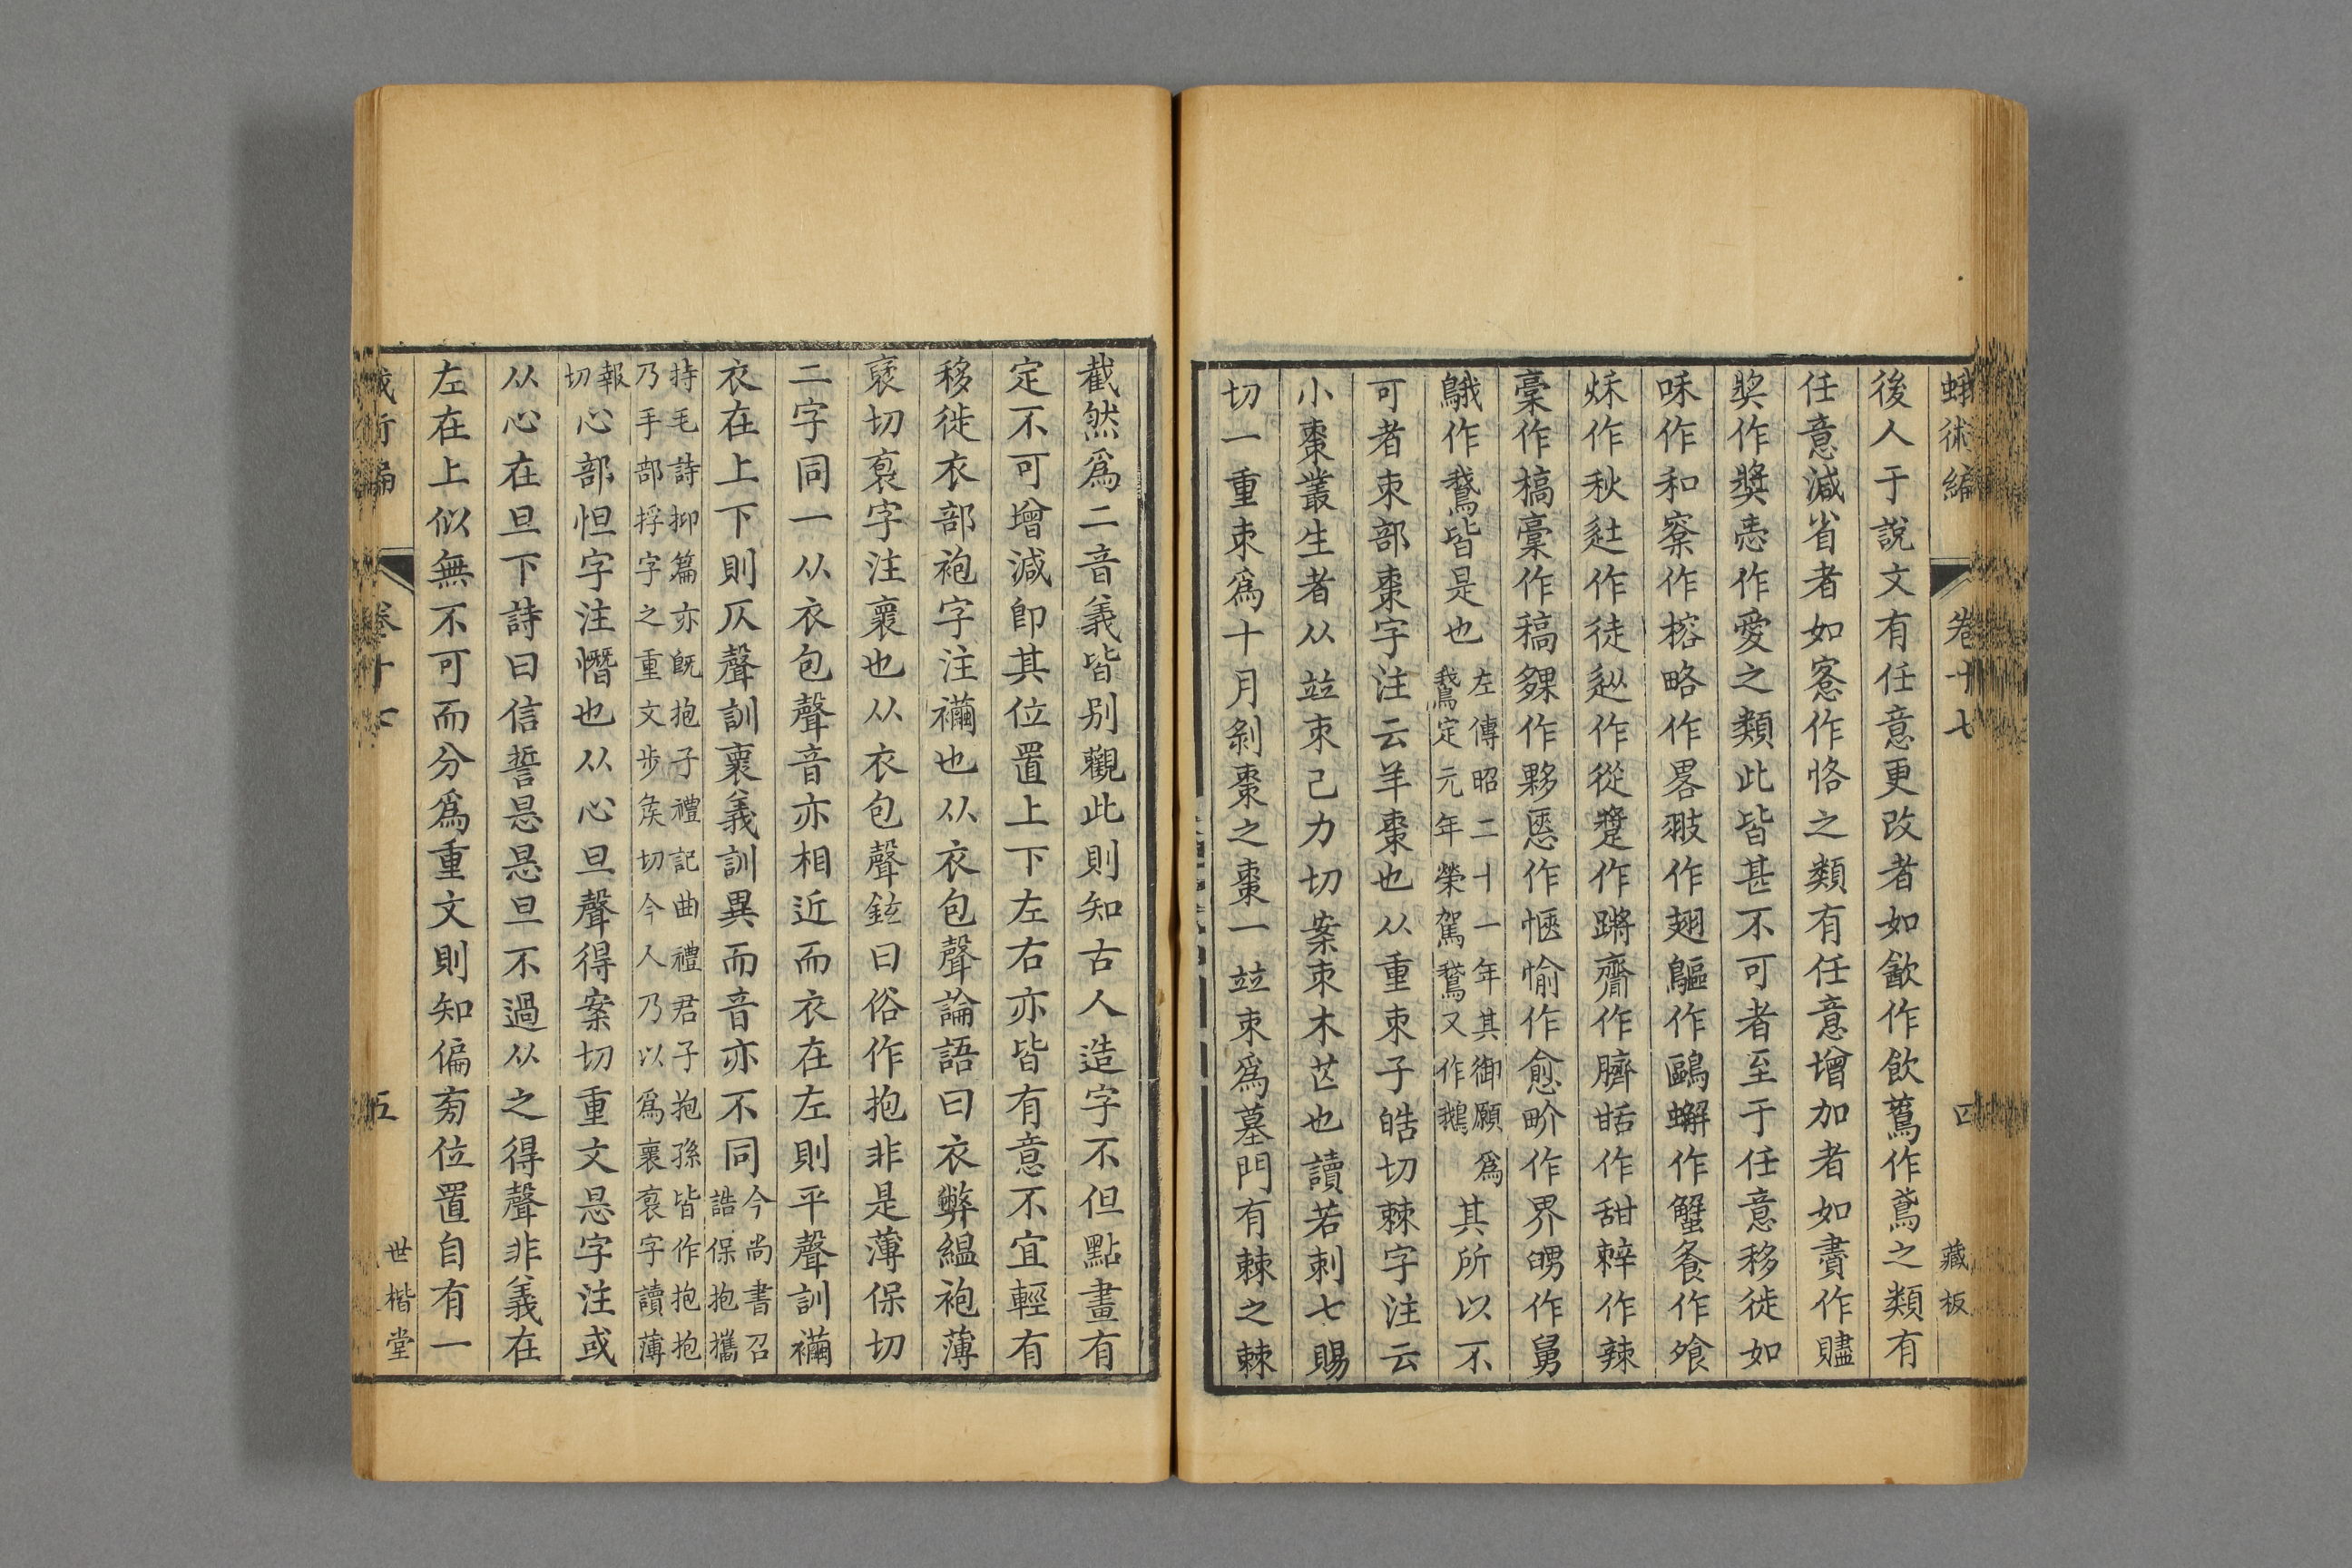 蛾術編 卷十七 四 藏板
後人于說文有任意更改者如㱃作飲蔦作鳶之類有
任意減省者如愙作恪之類有任意增加者如賮作贐
奬作獎㤅作愛之類此皆甚不可者至于任意移徙如
咊作和㮤作榕略作畧翄作翅鷗作鷗蠏作蟹飧作飱
烁作秋𨑒作徒䢐作從蹔作蹡齌作臍甛作甜辢作辣
稾作槁稾作稿䴹作夥愜作㥦愉作愈畍作界㽒作舅
䳘作鵞皆是也左傳昭二十一年其御願爲
鵞定元年榮駕鵞又作鵝其所以不
可者朿部棗字注云羊棗也从重朿子皓切棘字注云
小棗叢生者从竝朿己力切案朿木芒也讀若刺七賜
切一重朿爲十月剝棗之棗一竝朿爲墓門有棘之棘
截然爲二音義皆别觀此則知古人造字不但點畫有
定不可增減卽其位置上下左右亦皆有意不宜輕有
移徙衣部袍字注襺也从衣包聲論語曰衣弊縕袍薄
褒切裒字注褱也从衣包聲鉉曰俗作抱非是薄保切
二字同一从衣包聲音亦相近而衣在左則平聲訓襺
衣在上下則仄聲訓褱義訓異而音亦不同今尚書召
誥保抱攜
持毛詩抑篇亦旣抱子禮記曲禮君子抱孫皆作抱抱
乃手部捊字之重文步矦切今人乃以爲褱裒字讀薄
報
切心部怛字注憯也从心旦聲得案切重文㫜字注或
从心在旦下詩曰信誓㫜㫜旦不過从之得聲非義在
左在上似無不可而分爲重文則知偏旁位置自有一
卷十七 五 世楷堂